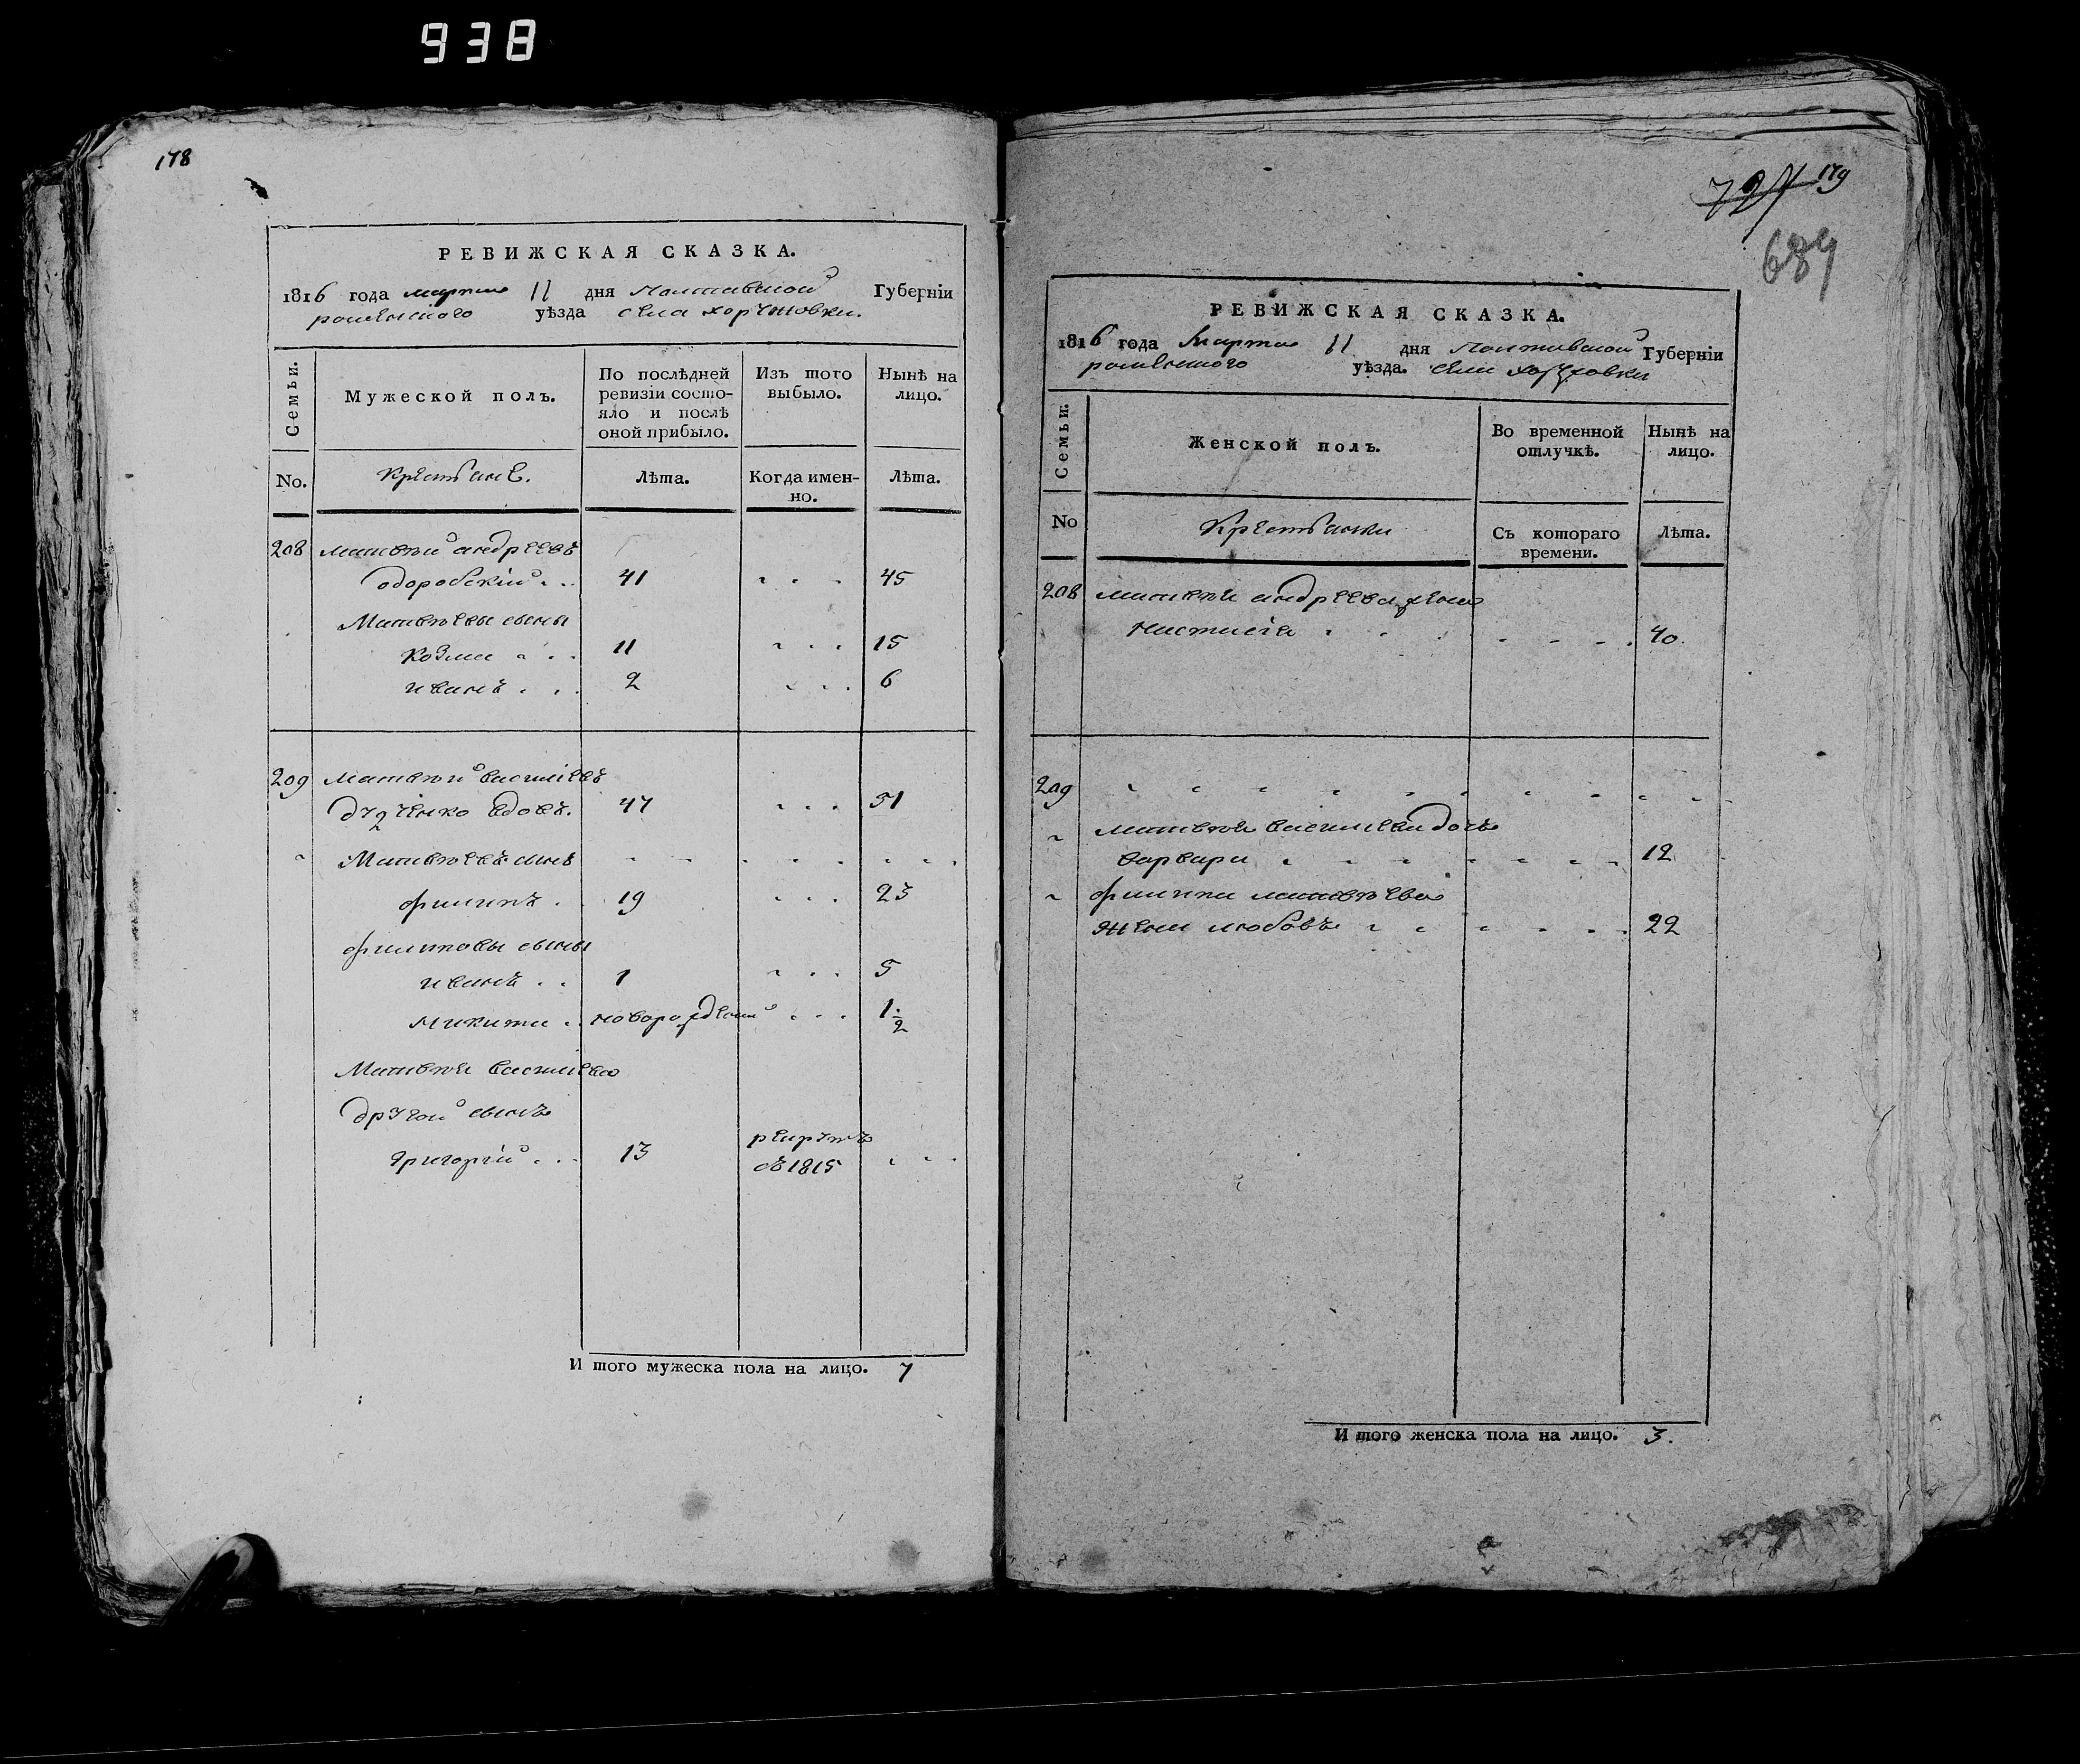 938
178
РЕВИЖСКАЯ СКАЗКА.
1816 года марта 11 дня Полтавской Губерніи
роменского уѣзда села хоружовки.
Семьи.
Мужеской полъ.
По послѣдней ревизіи состояло и послѣ оной прибыло.
Изъ того выбыло.
Нынѣ на лицо.
No.
Крестьяне.
Лѣта.
Когда именно.
Лѣта.
208 матвѣй андреевъ
41 45
Матвѣевы сыны
козма 11 15
иванъ 2 6
209 матвѣй василіевъ
вдовъ. 47 51
Матвѣевъ сынъ
филипъ 19 23
филиповы сыны
иванъ 1 5
микита новорожденный 1 1/2
Матвѣя василіева
другой сынъ
григорій 13 рекрутъ въ 1815
И того мужеска пола на лицо. 7
721 179
689
РЕВИЖСКАЯ СКАЗКА.
1816 года Марта 11 дня Полтавской Губерніи
роменского уѣзда. села хоружовки
Семьи.
Женской полъ.
Во временной отлучкѣ.
Нынѣ на лицо.
No
Крестьянки
Съ котораго времени.
Лѣта.
208 матвѣя андреева жена
настасія 40.
209
матвѣя василиева дочь
варвара 12
филипа матвѣева
жена любовъ 22
И того женска пола на лицо. 3.